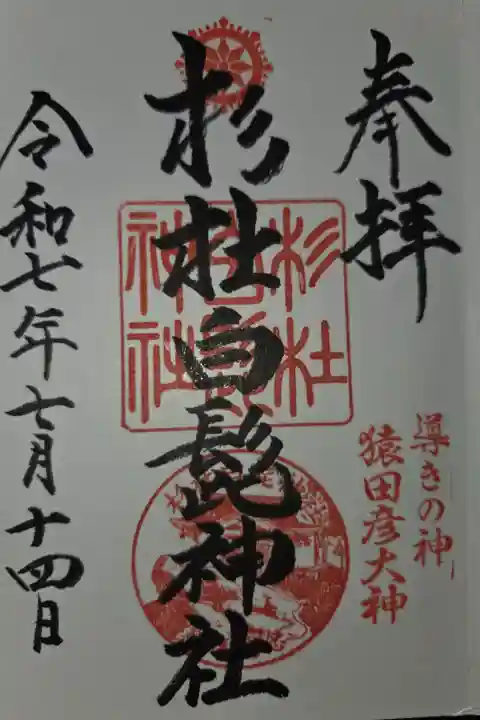 奉拝
導きの神
猿田彦大神
杉杜白髭神社
杉杜
白髭
神社
令和七年七月十四日